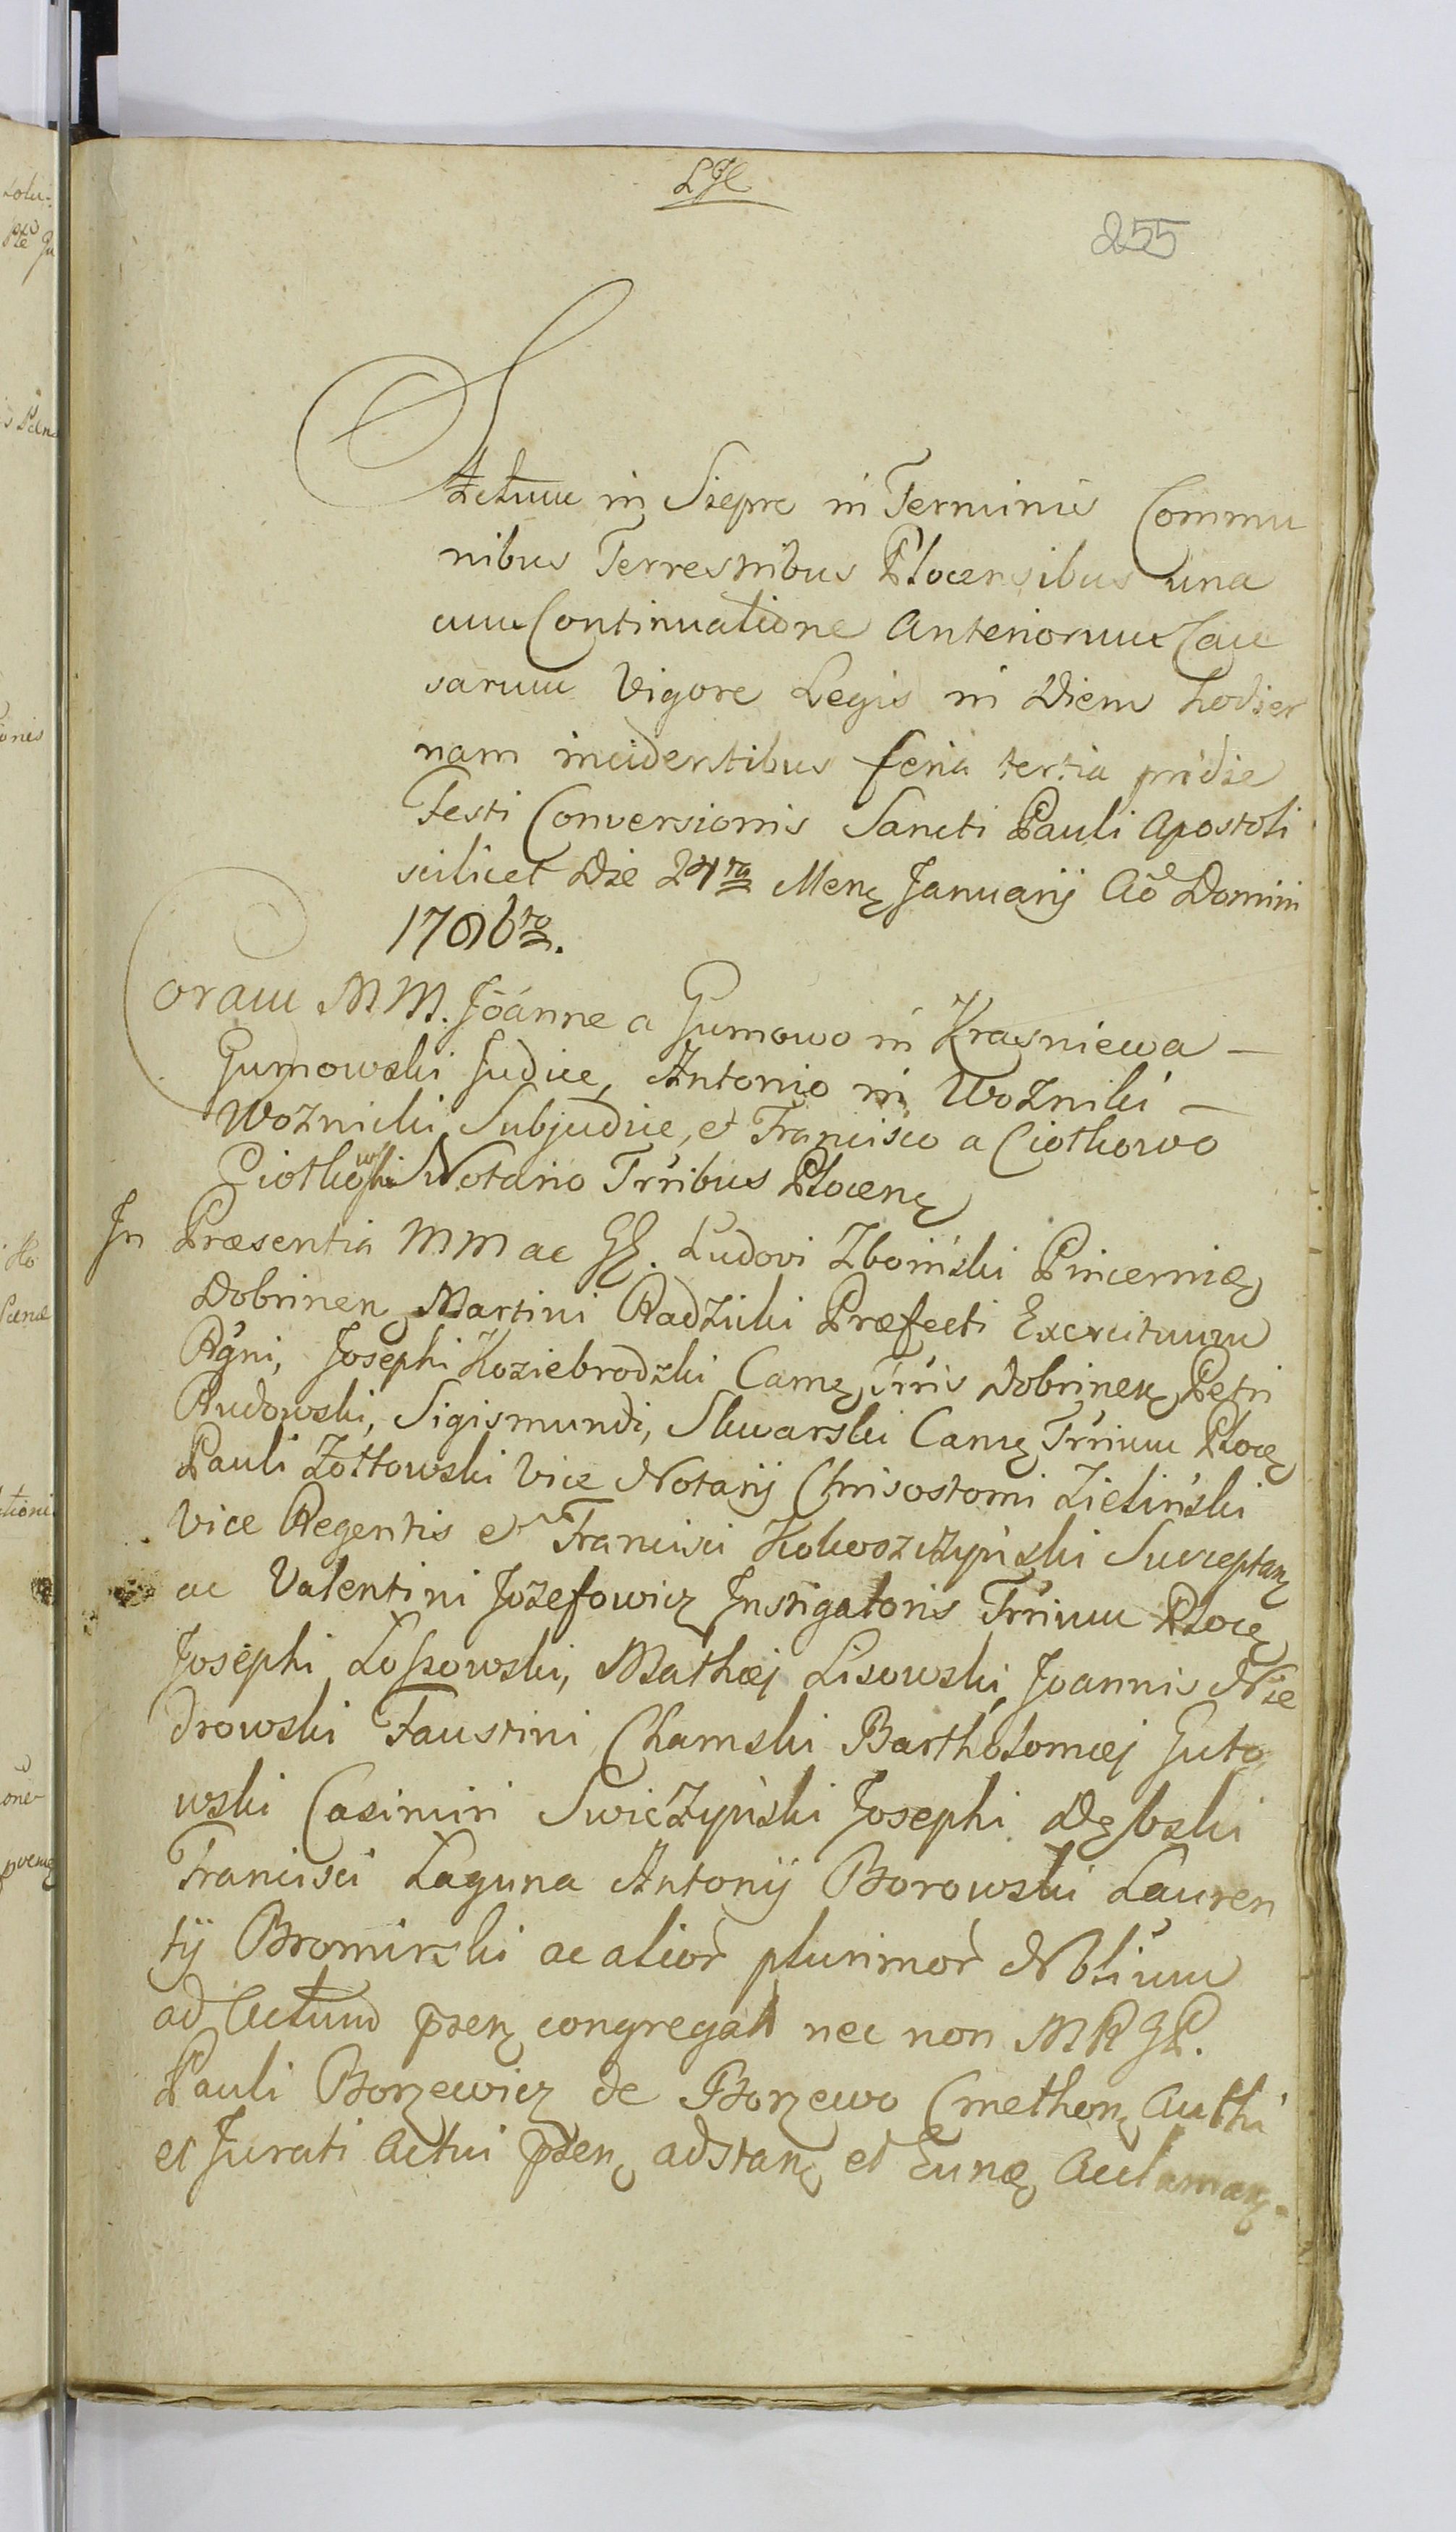 255
Actum in Siepre in Terminis Commu
nibus Terrestribus Plocensibus una
cum Continuatione Anteriorum Cau
sarum Vigore Legis in Diem hodier
nam incidentibus feria tertia pridie
Festi Conversionis Sancti Pauli Apostoli
scilicet Die 24ta Menę Januarij Aō Domini
1786to.
Coram M M. Joanne a Gumowo in Krasniewa —
Gumowski Judice, Antonio in Wozniki —
Woznicki Subjudice, et Francisco a Ciotkowo
Ciotkowski Notario Trribus Plocenę
In Præsentia M M ac GG. Ludovi Zboiński Pincernię
Dobrinenę Martini Radzicki Præfecti Exercituum
Rgni, Josephi Koziebrodzki Camę Trris Dobrinenę Petri
Rudowski, Sigismundi, Skwarski Camę Trrium Plocę
Pauli Zołtowski Vice Notarij Chrisostomi Zieliński
Vice Regentis et Francisci Kokoszczyński Susceptanę
ac Valentini Jozefowicz Instigatoris Trrium Plocę
Josephi Lossowski, Mathæj Lisowski Joannis Nie
drowski Faustini Chamski Bartholomæj Guto
wski Casimiri Swieżyński Josephi Dębski
Francisci Laguna Antonij Borowski Lauren
tij Bromirski ac alior plurimor Noblium
ad Actum psenę congregat nec non M R GP.
Pauli Borzewicz de Borzewo Cmethonę Authi
et Jurati Actui psenę adstanę et Eunę Acclamanę